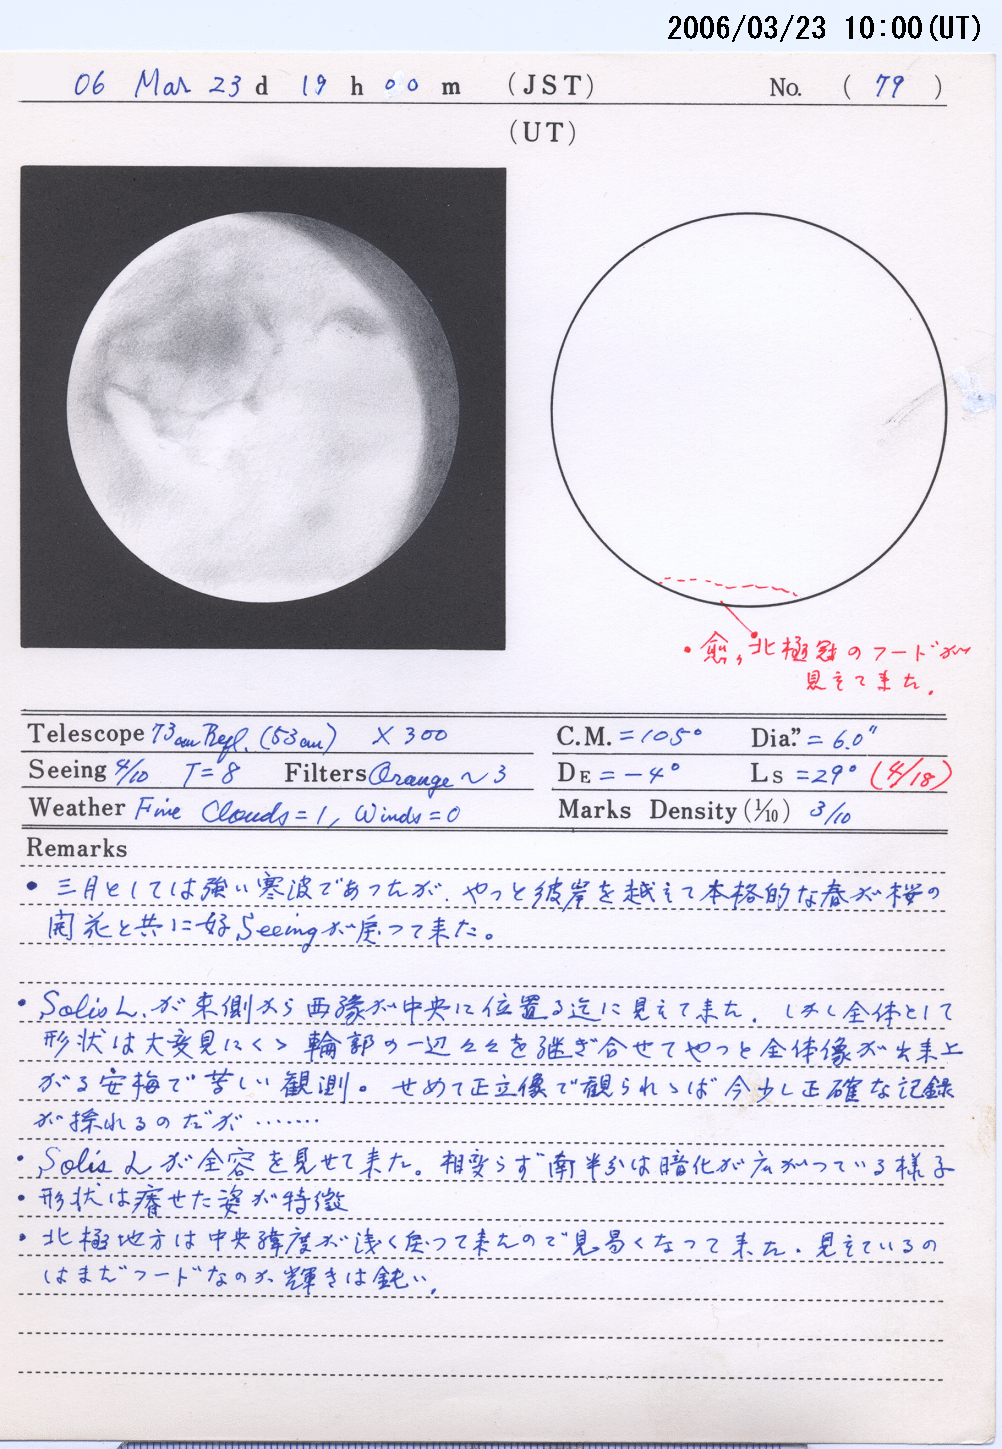 2006/03/23 10:00(UT)
06 Mar 23 d 19 h 00 m (JST) No. ( 79 )
(UT)
・愈々北極冠のフードが
見えて来た.
Telescope 73cm Refl. (53cm) × 300 C.M. = 105° Dia." = 6.0"
Seeing 4/10 T=8 Filters Orange ~ 3 DE = -4° Ls = 29° (4/18)
Weather Fine Clouds=1, Winds=0 Marks Density (1/10) 3/10
Remarks
・三月としては強い寒波であったが, やっと彼岸を越えて本格的な春が桜の
開花と共に好Seeingが戻って来た。
・Solis L.が東側から西縁が中央に位置る迄に見えて来た. しかし全体として
形状は大変見にくゝ輪郭の一辺々々を継ぎ合せてやっと全体像が出来上
がる安梅で苦しい観測。せめて正立像で観られゝば今少し正確な記録
が採れるのだが‥‥‥
・Solis Lが全容を見せて来た。相変らず南半分は暗化が広がっている様子
・形状は瘠せた姿が特徴
・北極地方は中央緯度が浅く戻って来たので見易くなって来た. 見えているの
はまだフードなのか輝きは鈍い.